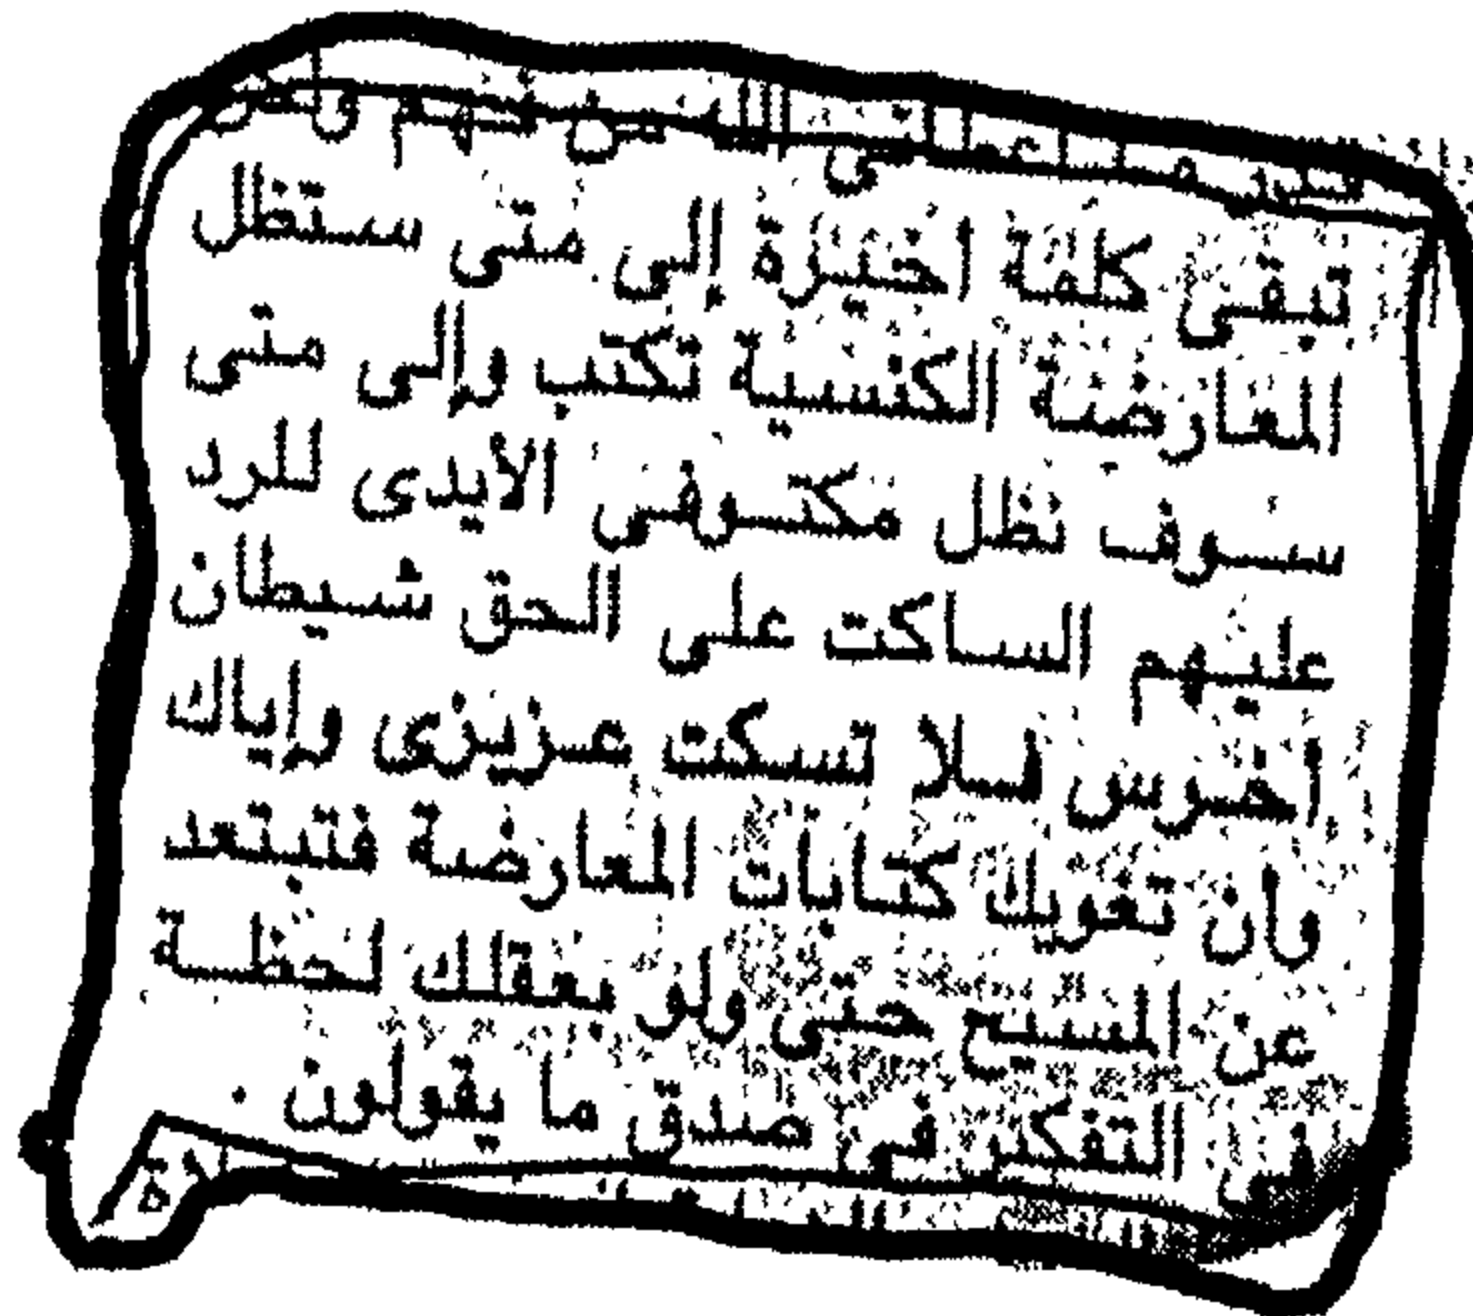 تبقى كلمة اخيرة إلى متى ستظل
المعارضة الكنسية تكتب وإلى متى
سوف نظل مكتوفى الأيدى للرد
عليهم الساكت على الحق شيطان
أخرس فلا تسكت عزيزى وإياك
وان تغويك كتابات المعارضة فتبتعد
عن المسيح حتى ولو بعقلك لحظة
فى التفكير فى صدق ما يقولون .